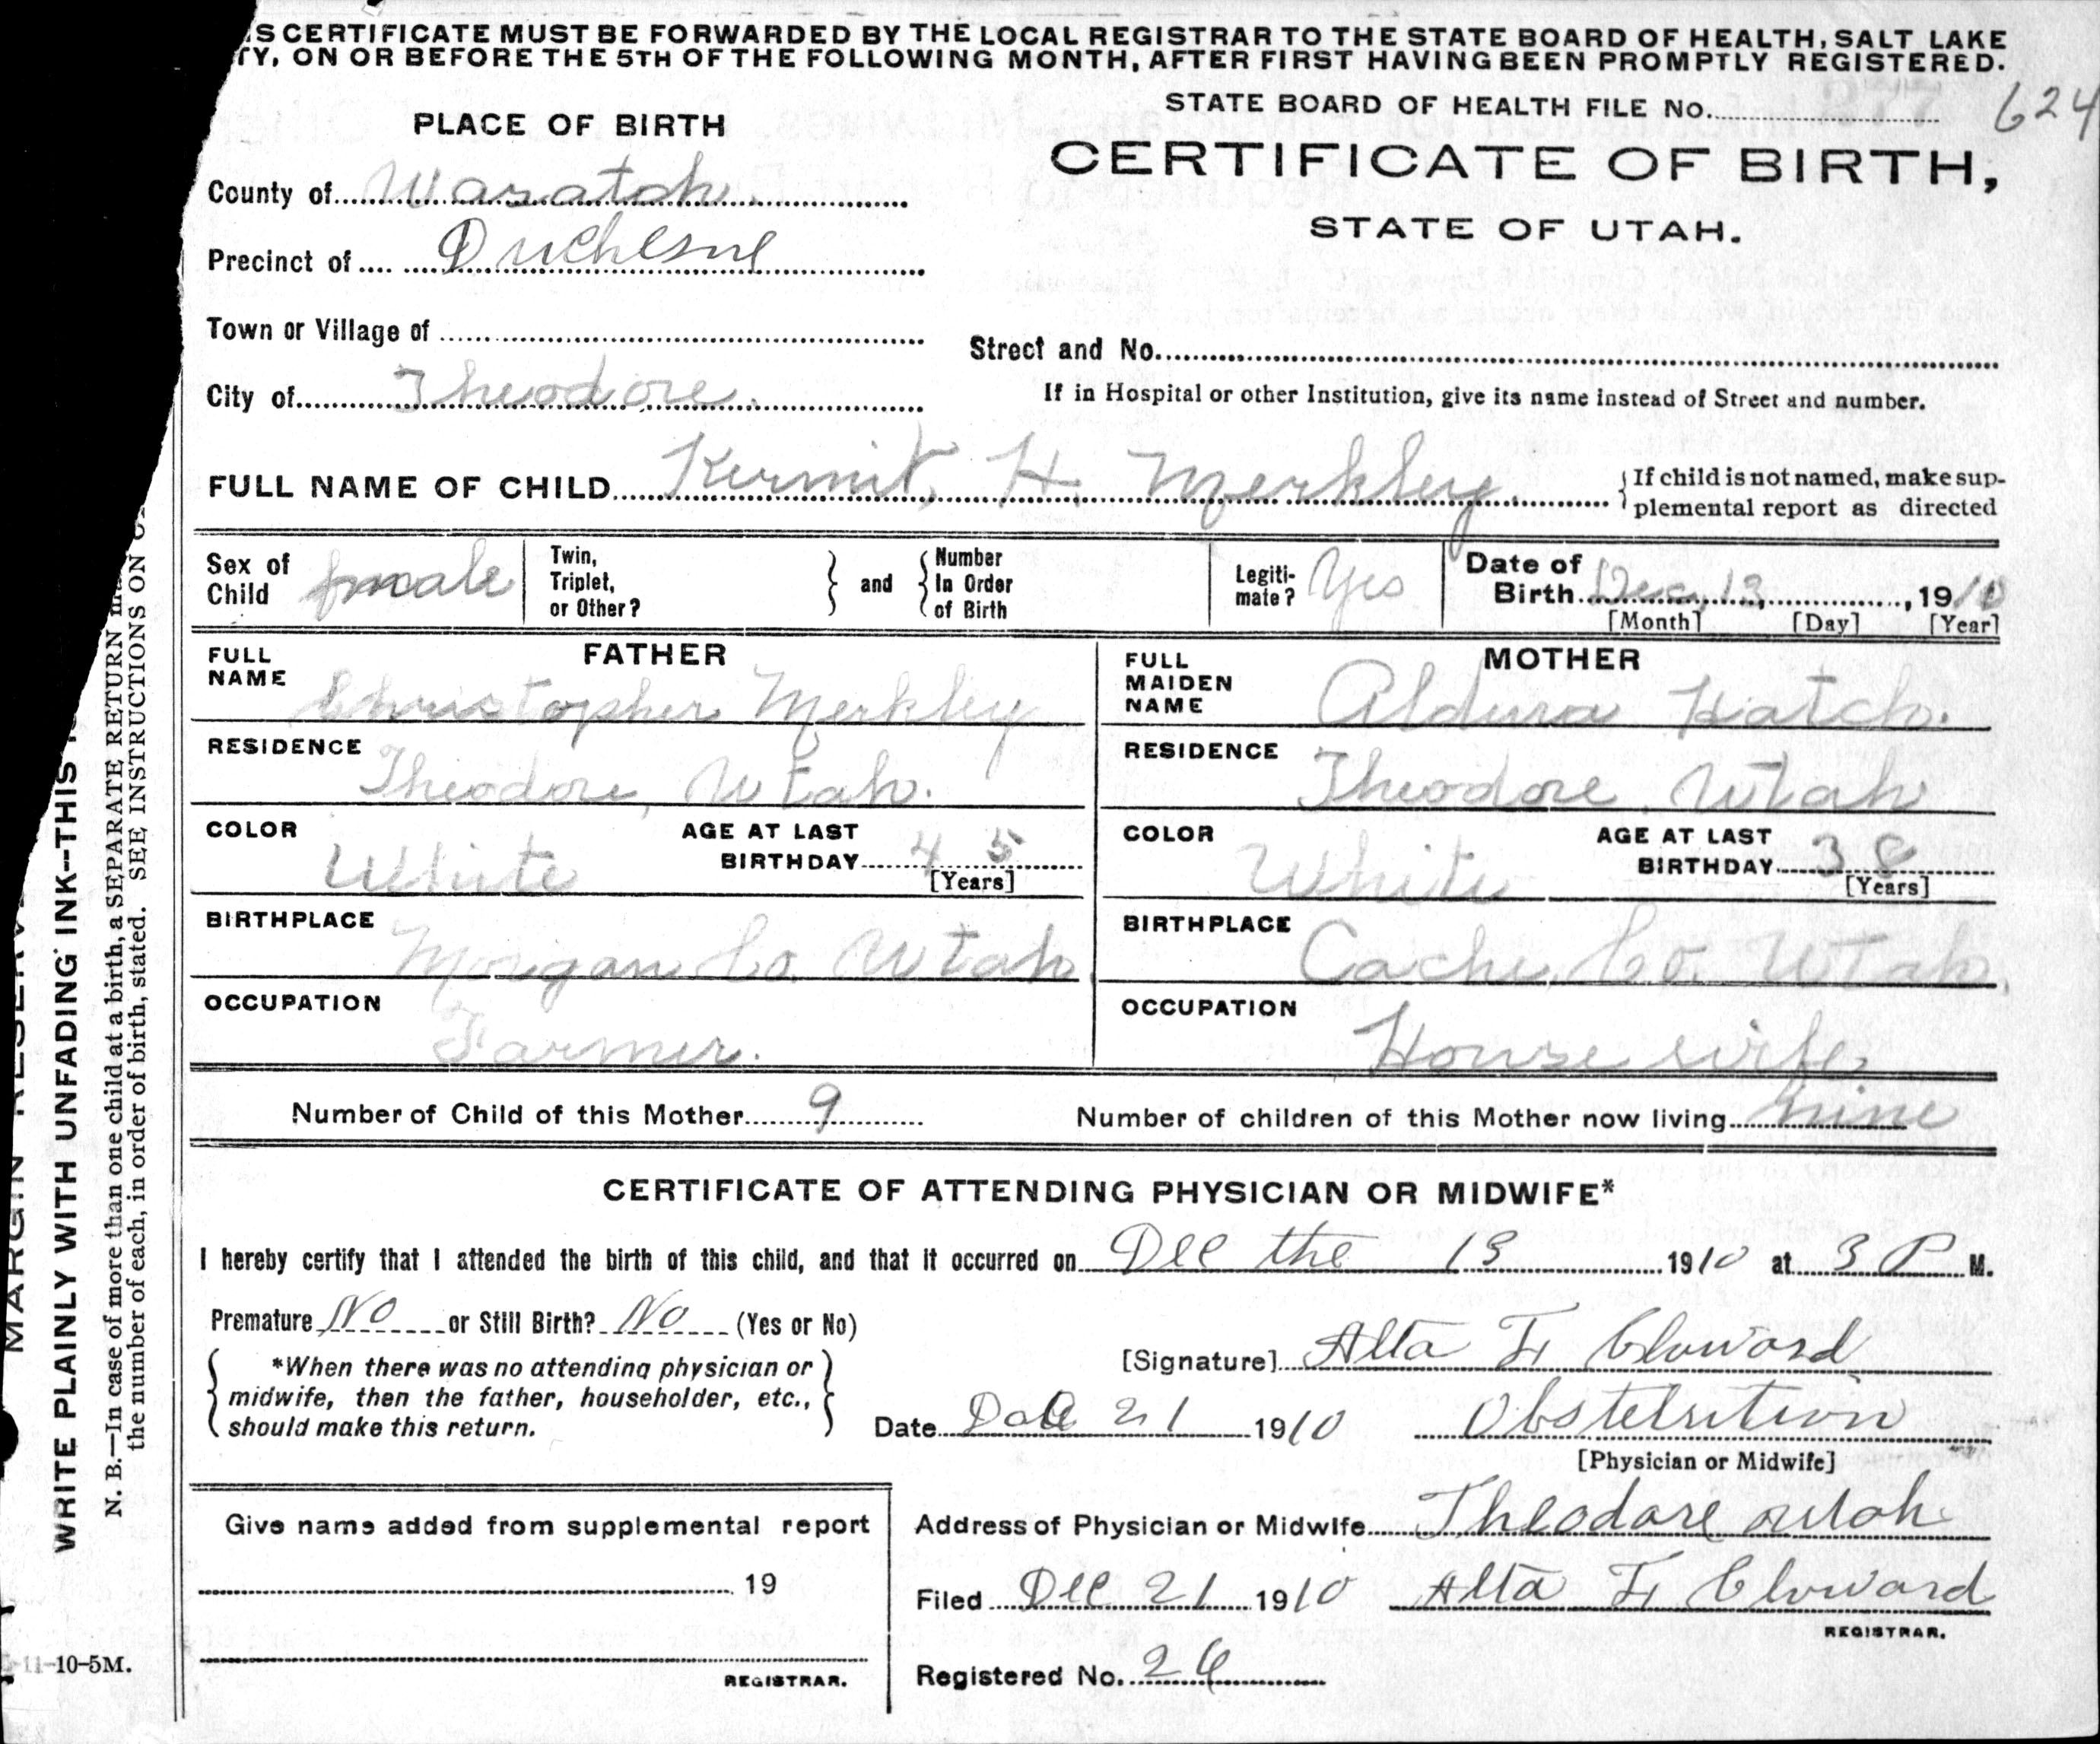 S CERTIFICATE MUST BE FORWARDED BY THE LOCAL REGISTRAR TO THE STATE BOARD OF HEALTH, SALT LAKE
TY, ON OR BEFORE THE 5TH OF THE FOLLOWING MONTH, AFTER FIRST HAVING BEEN PROMPTLY REGISTERED.
STATE BOARD OF HEALTH FILE No. 624
PLACE OF BIRTH
CERTIFICATE OF BIRTH,
STATE OF UTAH.
County of Wasatch
Precinct of Duchesne
Town or Village of
Street and No.
City of Theodore.
If in Hospital or other Institution, give its name instead of Street and number.
FULL NAME OF CHILD Kermit, H. Merkley.
If child is not named, make sup-
plemental report as directed
Sex of Child
Twin, Triplet, or Other?
and
Number In Order of Birth
Legiti-mate? Yes
Date of Birth Dec, 13, 1910
[Month] [Day] [Year]
FATHER
FULL NAME Christopher Merkley
RESIDENCE Theodore, Utah.
COLOR White
AGE AT LAST BIRTHDAY 45 [Years]
BIRTHPLACE Morgan Co. Utah
OCCUPATION Farmer.
MOTHER
FULL MAIDEN NAME Aldura Hatch.
RESIDENCE Theodore, Utah
COLOR White
AGE AT LAST BIRTHDAY 38 [Years]
BIRTHPLACE Cache, Co. Utah
OCCUPATION House wife
Number of Child of this Mother 9
Number of children of this Mother now living nine
CERTIFICATE OF ATTENDING PHYSICIAN OR MIDWIFE*
I hereby certify that I attended the birth of this child, and that it occurred on Dec the 13 1910 at 3 P M.
Premature No or Still Birth? No (Yes or No)
*When there was no attending physician or
midwife, then the father, householder, etc.,
should make this return.
[Signature] Alta F. Cloward
Date 21 1910
[Physician or Midwife]
Address of Physician or Midwife Theodore Utah
Filed Dec 21 1910 Alta F. Cloward
REGISTRAR.
Registered No. 26
Give name added from supplemental report
19
REGISTRAR.
WRITE PLAINLY WITH UNFADING INK--THIS
N. B.—In case of more than one child at a birth, a SEPARATE RETURN
the number of each, in order of birth, stated. SEE INSTRUCTIONS ON
11-10-5M.